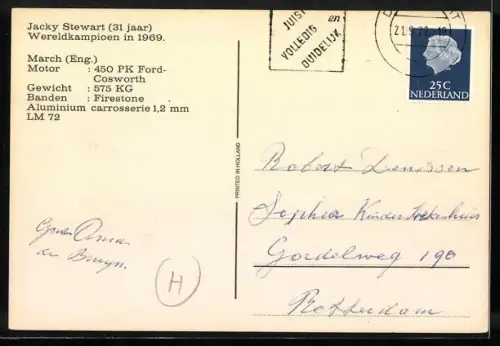 Jacky Stewart (31 jaar)
Wereldkampioen in 1969.
March (Eng.)
Motor : 450 PK Ford-
Cosworth
Gewicht : 575 KG
Banden : Firestone
Aluminium carrosserie 1,2 mm
LM 72
JUIST en
VOLLEDIG
DUIDELIJK
25C
NEDERLAND
PRINTED IN HOLLAND
Robert
Sophia Kinder
Gordelweg 190
Rotterdam
Oma
de Bruyn.
H